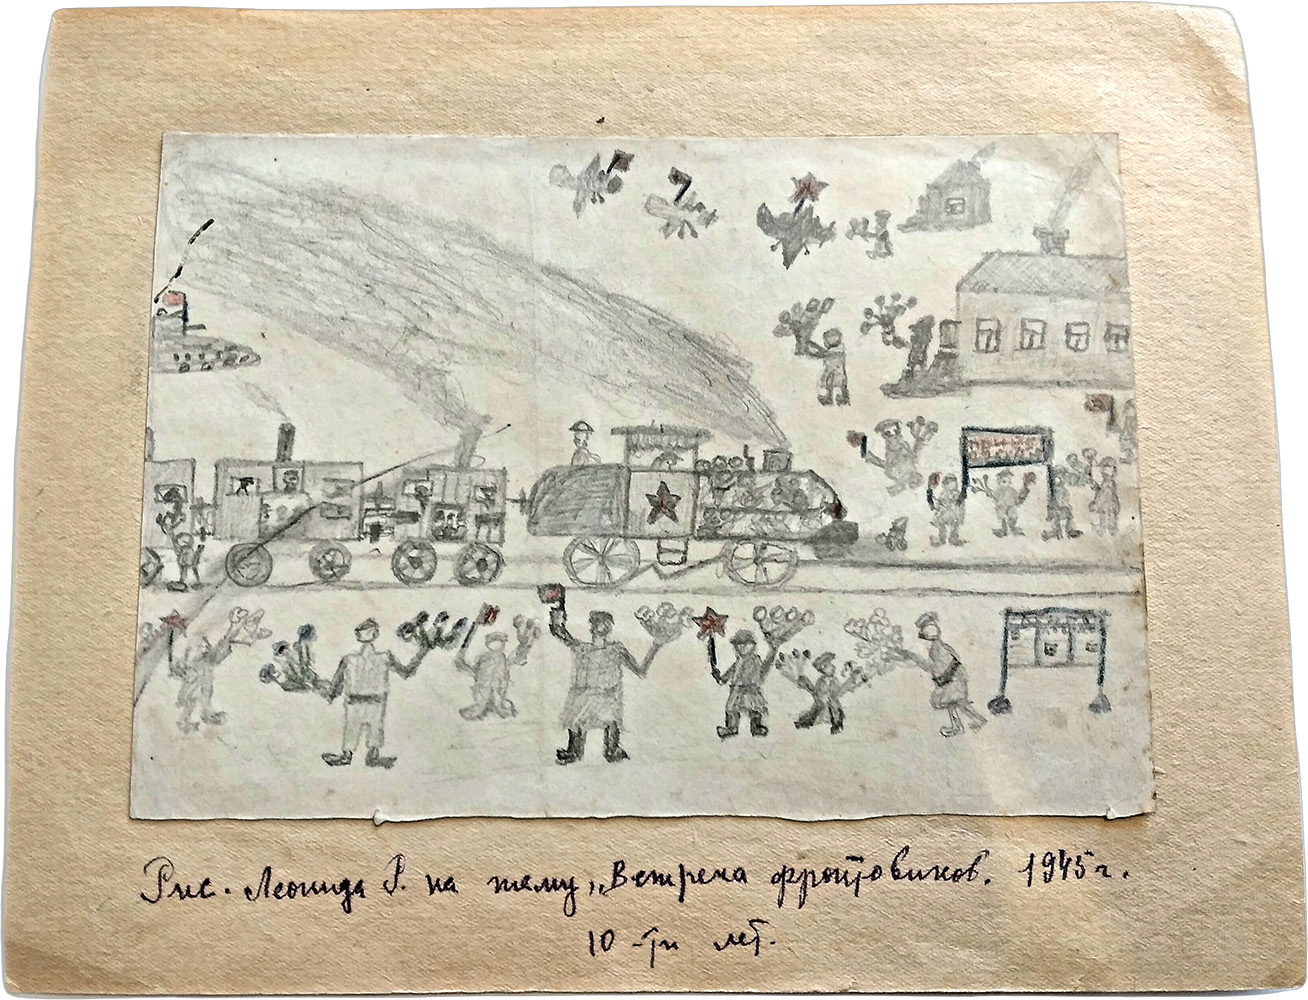 Рис. Леонида Р. на тему „Встреча фронтовиков. 1945 г.
10-ти лет.